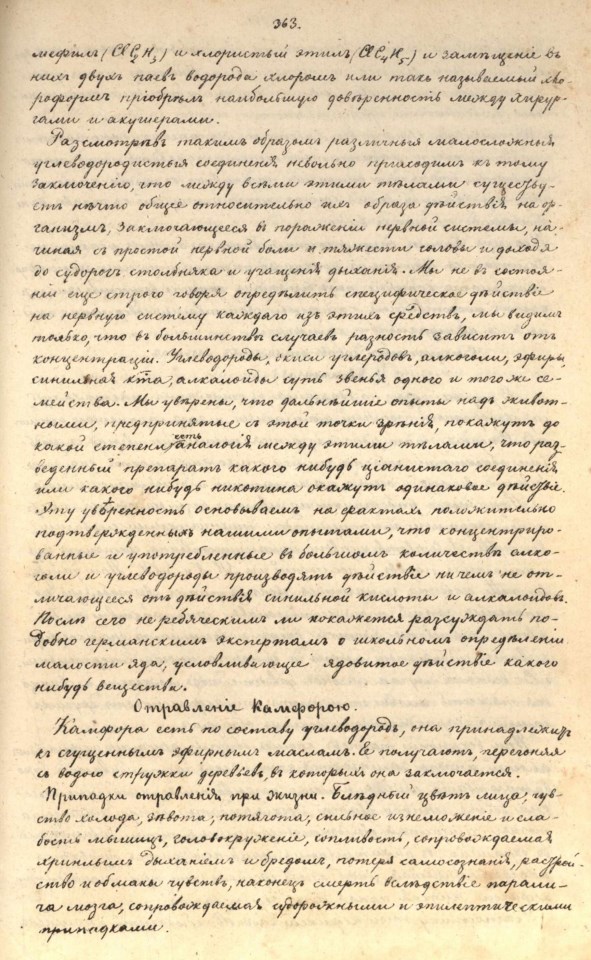 363.
метилъ (ClC2H3) и хлористый этилъ (ClC4H5) и замѣщеніе въ
нихъ двухъ паевъ водорода хлоромъ или такъ называемый хло-
роформъ пріобрѣлъ наибольшую довѣренность между хирур-
гами и акушерами.
Разсмотрѣвъ такимъ образомъ различныя малосложныя
углеводородистыя соединенія невольно приходимъ къ тому
заключенію, что между всѣми этими тѣлами существу-
етъ нѣчто общее относительно ихъ образа дѣйствія на ор-
ганизмъ, заключающееся въ пораженіи нервной системы, на-
чиная съ простой нервной боли и тяжести головы и доходя
до судорогъ столбняка и учащенія дыханія. Мы не въ состоя-
ніи еще строго говоря опредѣлить специфическое дѣйствіе
на нервную систему каждаго изъ этихъ средствъ, мы видимъ
только, что въ большинствѣ случаевъ разность зависитъ отъ
концентраціи. Углеводороды, окиси углеродовъ, алкоголи, эфиры,
синильная к-та, алкалоиды суть звенья одного и того же се-
мейства. Мы увѣрены, что дальнѣйшіе опыты надъ живот-
ными, предпринятые съ этой точки зрѣнія, покажутъ до
какой степени есть аналогія между этими тѣлами, что раз-
веденный препаратъ какого нибудь ціанистаго соединенія
или какого нибудь никотина окажутъ одинаковое дѣйствіе.
Эту увѣренность основываемъ на фактахъ положительно
подтвержденныхъ нашими опытами, что концентриро-
ванные и употребленные въ большомъ количествѣ алко-
голи и углеводороды производятъ дѣйствіе ничемъ не от-
личающееся отъ дѣйствія синильной кислоты и алкалоидовъ.
Послѣ сего не ребяческимъ ли покажется разсуждать по-
добно германскимъ экспертамъ о школьномъ опредѣленіи
малости яда, условливающее ядовитое дѣйствіе какого
нибудь вещества.
Отравленіе Камфорою.
Камфора есть по составу углеводородъ, она принадлежитъ
къ сгущеннымъ эфирнымъ масламъ. Ее получаютъ, перегоняя
съ водою стружки деревьевъ, въ которыхъ она заключается.
Припадки отравленія при жизни. Блѣдный цвѣтъ лица, чув-
ство холода, зѣвота, потягота, сильное изнеможеніе и сла-
бость мышицъ, головокруженіе, сонливость, сопровождаемая
хриплымъ дыханіемъ и бредомъ, потеря самосознанія, разстрой-
ство и обманы чувствъ, наконецъ смерть вслѣдствіе парали-
ча мозга, сопровождаемая судорожными и эпилептическими
припадками.